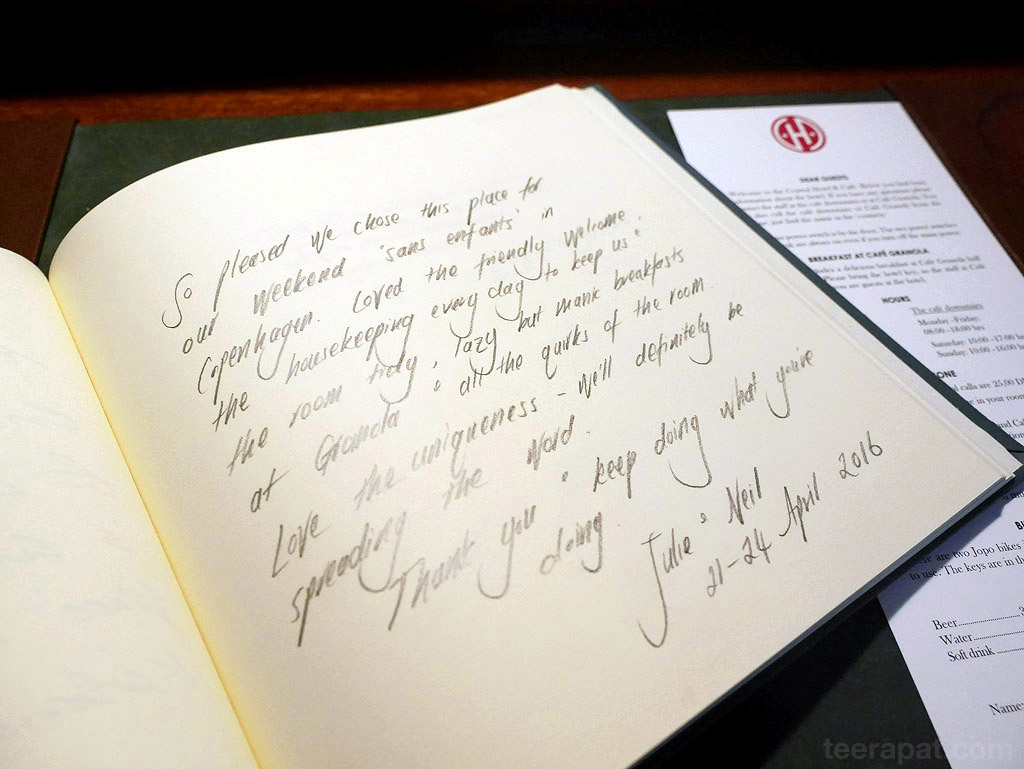 So pleased we chose this place for
our weekend 'sans enfants' in
Copenhagen. Loved the friendly welcome,
the housekeeping every day to keep us &
the room tidy, lazy but manic breakfasts
at Granola & all the quirks of the room.
Love the uniqueness - we'll definitely be
spreading the word.
Thank you & keep doing what you're
doing.
Julie & Neil
21-24 April 2016
H
DEAR GUESTS
BREAKFAST AT CAFÉ GRANOLA
HOURS
The café downstairs
Monday - Friday:
08:00 - 18:00 hrs
Saturday: 10:00 - 17:00
Sunday: 10:00 - 16:00
calls are 25,00
in your room
are two Jopo bikes
to use. The keys are in
Beer
Water
Soft drink
Name:
teerapat.com